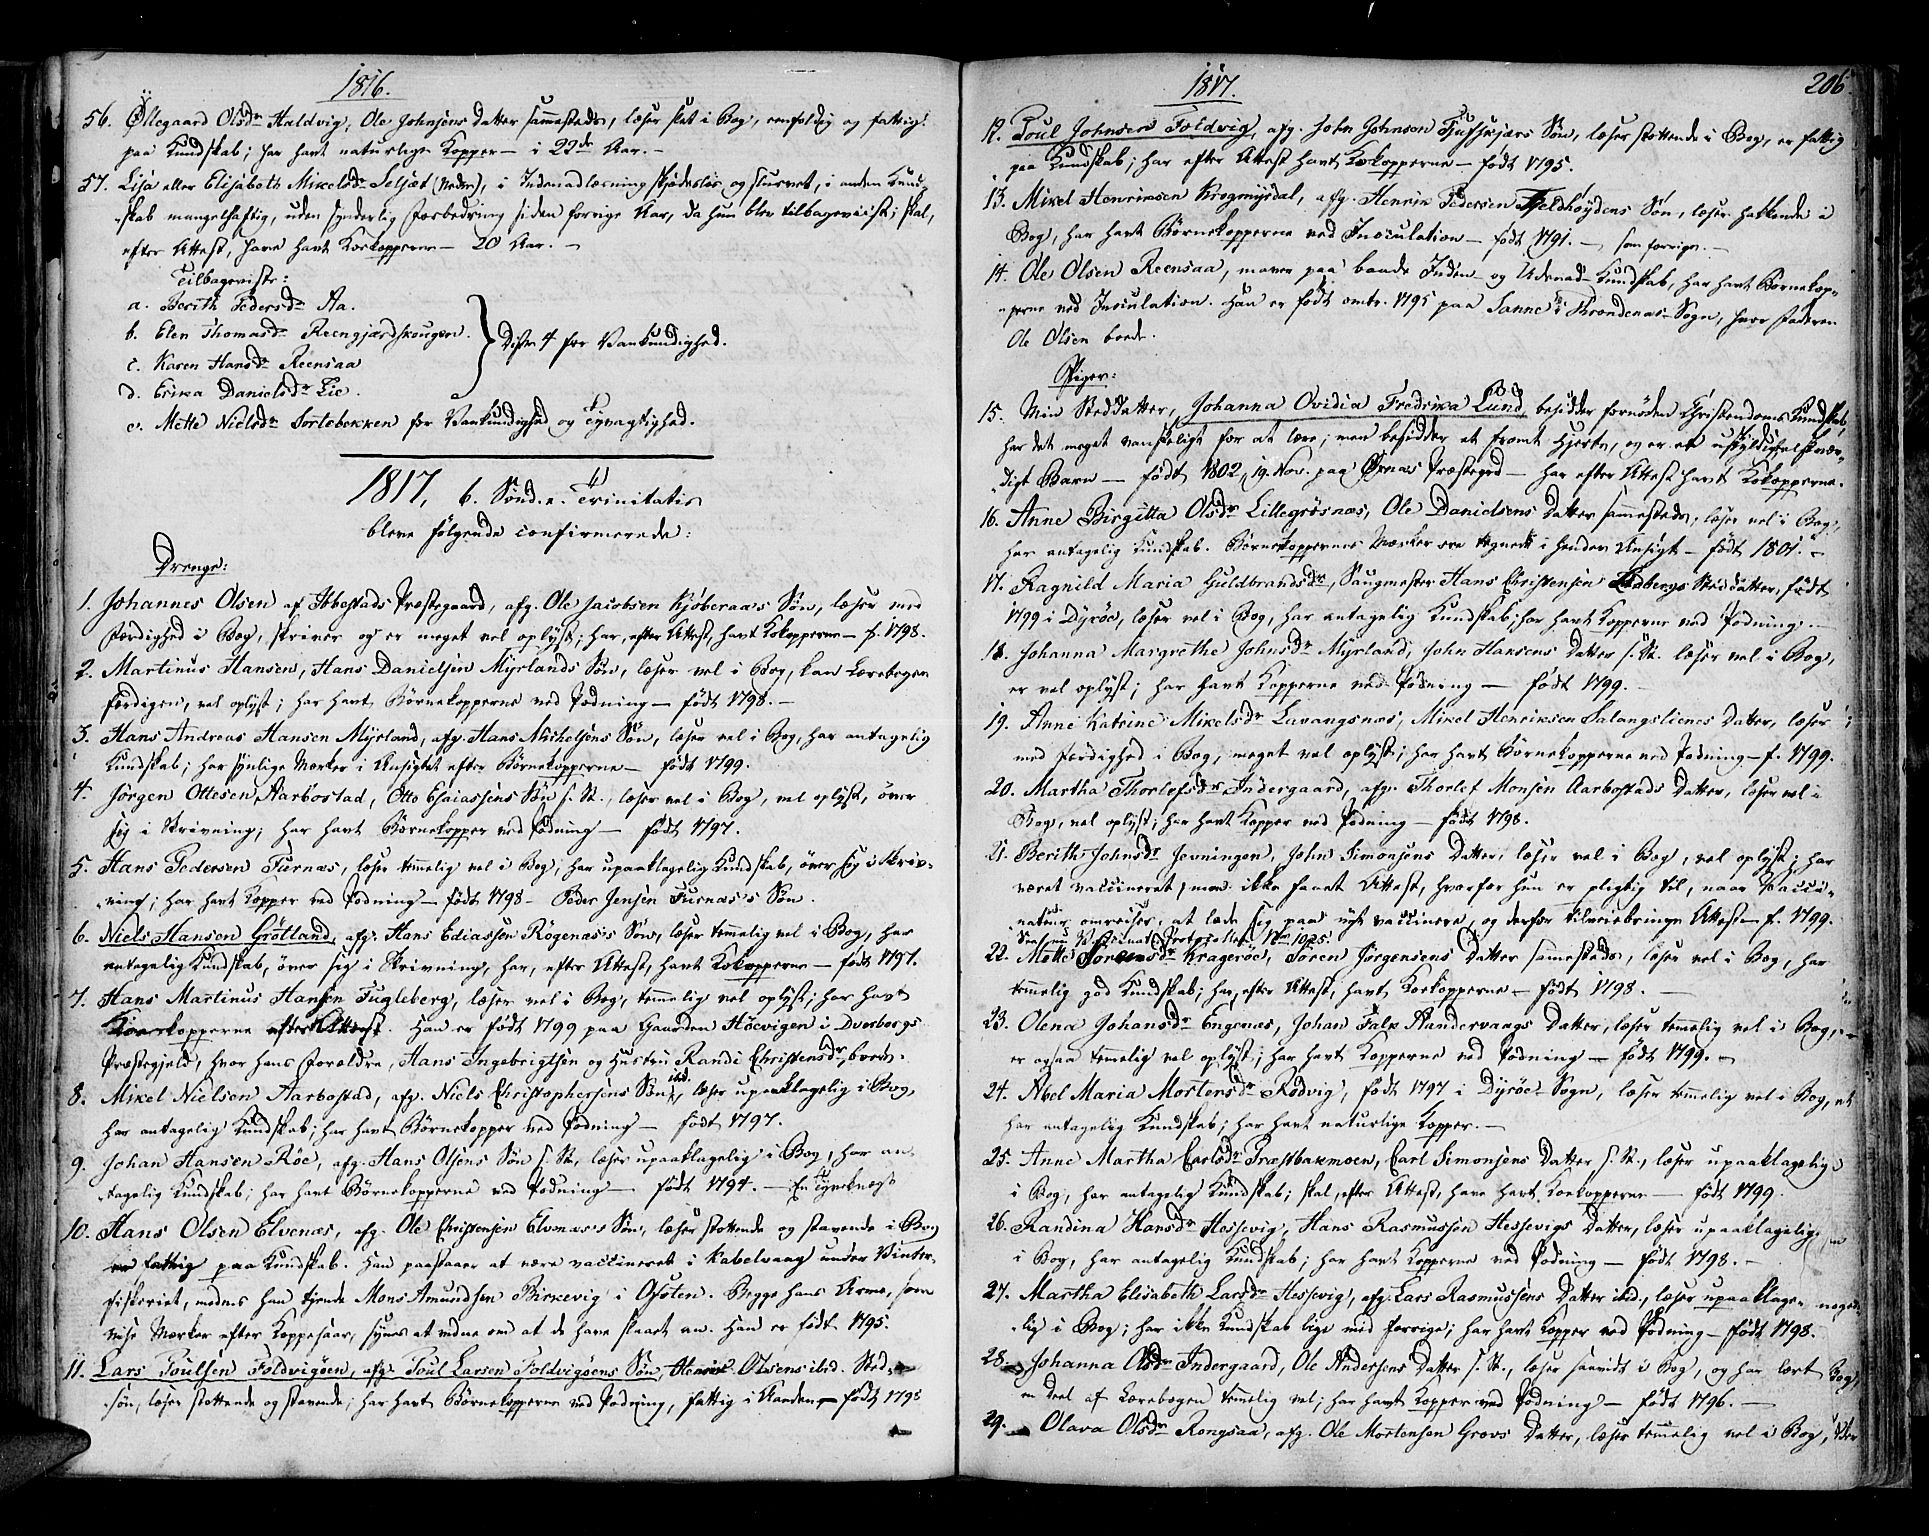 1816.
56. Øllegaard Olsdr Haldvig, Ole Johnsens Datter sammesteds, læser slet i Bog, eenfoldig og fattig
paa Kundskab; har havt naturlige Kopper — i 22de Aar. —
57. Lisa eller Elisabeth Mikelsdr Seljæt (Nedre), i Indenadlæsning skjødesløs og slurvet, i anden Kund-
skab mangelhaftig, uden synderlig Forbedring siden forrige Aar, da hun blev tilbageviist; skal,
efter Attest, have havt Koekopperne — 20 Aar. —
Tilbageviste:
a. Berith Pedersdr Aa.
b. Elen Thomasdr Reengjærdskougen.
c. Karen Hansdr Reensaa
d. Erika Danielsdr Lie.
Disse 4 for Vankundighed.
e. Mette Nielsdr Sortebekken for Vankundighed og Tyvagtighed.
1817, 6. Sønd. e. Trinitatis
bleve følgende confirmerede:
Drenge:
1. Johannes Olsen af Ibbestads Præstegaard, afg. Ole Jacobsen Kjøberaaes Søn, læser med
Færdighed i Bog, skriver og er meget vel oplyst; har, efter Attest, havt Kokopperne — f. 1798.
2. Martinus Hansen, Hans Danielsen Myrlands Søn, læser vel i Bog, kan Lærebogen
færdigen, vel oplyst; har havt Børnekopperne ved Podning — født 1798. —
3. Hans Andreas Hansen Myrland, afg. Hans Mikkelsens Søn, læser vel i Bog, har antagelig
Kundskab; har synlige Mærker i Ansigtet efter Børnekopperne — født 1799.
4. Jørgen Ottesen Aarbostad, Otto Esaiassens Søn s. St., læser vel i Bog, vel oplyst, øver
sig i Skrivning; har havt Børnekopper ved Podning — født 1797.
5. Hans Pedersen Furnæs, læser temmelig vel i Bog, har upaaklagelig Kundskab, øver sig i Skriv-
ning; har havt Kopper ved Podning — født 1798 — Peder Jensen Furnæs's Søn.
6. Niels Hansen Grøtland, afg. Hans Ediassen Røgenæs's Søn, læser temmelig vel i Bog, har
antagelig Kundskab, øver sig i Skrivning, har, efter Attest, havt Kokopperne — født 1797.
7. Hans Martinus Hansen Fugleberg, læser vel i Bog, temmelig vel oplyst; har havt
Koekopperne efter Attest. Han er født 1799 paa Gaarden Høevigen i Dverbergs
Præstegjeld, hvor hans Forældre, Hans Ingebrigtsen og Hustru Randi Christensdr boede.
8. Mikel Nielsen Aarbostad, afg. Niels Christophersens Søn ibid., læser upaaklagelig i Bog,
har antagelig Kundskab; har havt Børnekopper ved Podning — født 1797.
9. Johan Hansen Røe, afg. Hans Olsens Søn s. St., læser upaaklagelig i Bog, har an-
tagelig Kundskab; har havt Børnekopperne ved Podning — født 1794. — En Tyveknegt
10. Hans Olsen Elvenæs, afg. Ole Christensen Elvenæs's Søn, læser stottende og stavende i Bog
er fattig paa Kundskab. Han paastaaer at være vaccineret i Kabelvaag under Vinter-
fiskeriet, medens han tjente Mons Amundsen Birkevig i Ofoten. Begge hans Arme, som
vise Mærker efter Koppesaar, synes at vidne om at de have slaaet an. Han er født 1795.
11. Lars Poulsen Foldvigøen, afg. Poul Larsen Foldvigøens Søn, Olsens ibid. Sted-
søn, læser stottende og stavende; har havt Børnekopperne ved Podning, fattig i Aanden — født 1798
1817.
206
12. Poul Johnsen Foldvig, afg. John Johnsen Søn, læser stottende i Bog, er fattig
paa Kundskab; har efter Attest havt Kokopperne — født 1795.
13. Mikel Henriksen Krogmyrdal, afg. Henrik Pedersen Fjeldhøydens Søn, læser hakkende i
Bog, har havt Børnekopperne ved Inoculation — født 1791. — som forrige. —
14. Ole Olsen Reensaa, maver paa baade Inden og Udenad-Kundskab, har havt Børnekop-
perne ved Inoculation. Han er født omtr. 1795 paa Sanne i Throndenæs Sogn, hvor Faderen
Ole Olsen boede.
Piger:
15. Min Steddatter, Johanna Ovidia Fredrika Lund, besidder fornøden Christendoms Kundskab,
har det meget vanskeligt for at lære; men besidder et fromt Hjerte, og er et uskyldigt elskvær-
digt Barn — født 1802, 19. Nov. paa Præstegrd — har efter Attest havt Kokopperne.
16. Anne Birgitta Olsdr Lillegrøsnæs, Ole Danielsens Datter sammesteds, læser vel i Bog,
har antagelig Kundskab. Børnekoppernes Mærker ere tegnede i hendes Ansigt — født 1801. —
17. Ragnild Maria Guldbrandsdr, Saugmester Hans Christensen Lidbergs Steddatter, født
1799 i Dyrøe, læser vel i Bog, har antagelig Kundskab; har havt Kopperne ved Podning. —
18. Johanna Margrethe Johnsdr Myrland, John Hansens Datter s. St. læser vel i Bog,
er vel oplyst; har havt Kopperne ved Podning — født 1799. —
19. Anne Katrine Mikelsdr Lavangsnæs, Mikel Henriksen Salangslienes Datter, læser
med Færdighed i Bog, meget vel oplyst; har havt Børnekopperne ved Podning — f. 1799.
20. Martha Thorlefsdr Indergaard, afg. Thorlef Monsen Aarbostads Datter, læser vel i
Bog, vel oplyst; har havt Kopper ved Podning — født 1798.
21. Berith Johnsdr Jevningen, John Simonsens Datter, læser vel i Bog, vel oplyst; har
været vaccineret, men ikke faaet Attest, hvorfor hun er pligtig til, naar Vacci-
nateur omreiser, at lade sig paa nyt vaccinere, og derfor tilveiebringe Attest — f. 1799.
See nu Protocollen No 1025.
22. Mette Sørensdr Kragerøe, Søren Jørgensens Datter sammesteds, læser vel i Bog, har
temmelig god Kundskab; har, efter Attest, havt Koekopperne — født 1798. —
23. Olena Johansdr Engenæs, Johan Falk Sandervaags Datter, læser temmelig vel i Bog,
er ogsaa temmelig vel oplyst; har havt Kopperne ved Podning — født 1799. —
24. Abel Maria Mortensdr Rødvig, født 1797 i Dyrøe Sogn, læser temmelig vel i Bog,
har antagelig Kundskab; har havt naturlige Kopper. —
25. Anne Martha Carlsdr Præstbakmoen, Carl Simonsens Datter s. St., læser upaaklagelig
i Bog, har antagelig Kundskab; skal, efter Attest, have havt Koekopperne — født 1799.
26. Randina Hansdr Hessevig, Hans Rasmussen Hessevigs Datter, læser upaaklagelig
i Bog, har antagelig Kundskab; har havt Kopperne ved Podning — født 1798. —
27. Martha Elisabeth Larsdr Hessevig, afg. Lars Rasmussens Datter ibid., læser upaaklage-
lig i Bog; har ikke Kundskab lige med forrige; har havt Kopper ved Podning — født 1798.
28. Johanna Olsdr Indergaard, Ole Andersens Datter s. St., læser saavidt i Bog, og har lært
en Deel af Lærebogen temmelig vel; har havt Kopper ved Podning — født 1796. —
29. Olava Olsdr Rongsaa, afg. Ole Mortensen Grovs Datter, læser temmelig vel i Bog,